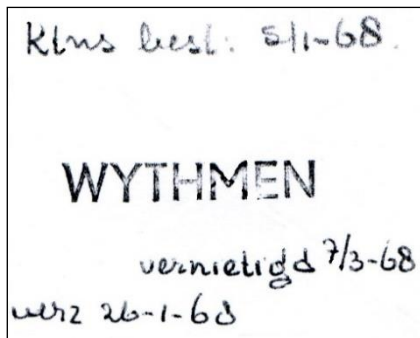 Klns best: 5/1-68.
WYTHMEN
vernietigd 7/3-68
verz 26-1-68